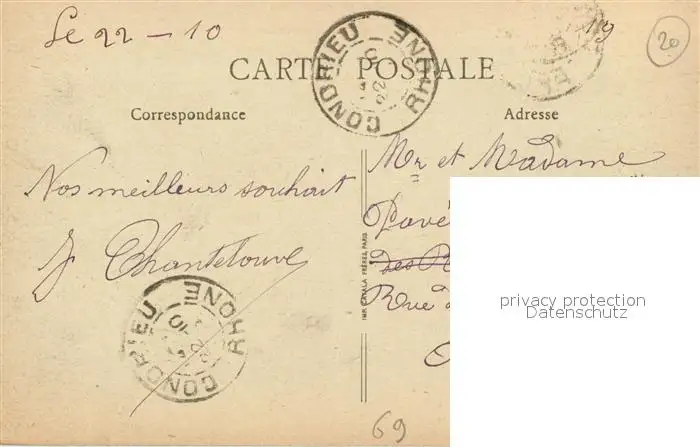 Le 22 - 10
19
20
CONDRIEU RHONE
CARTE POSTALE
Correspondance
Adresse
Mr et Madame
Nos meilleurs souhait
J Chantelouve
Pavé
des R
Rue d
IMP. CAVALA FRÈRES, PARIS
privacy protection
Datenschutz
CONDRIEU RHONE
69